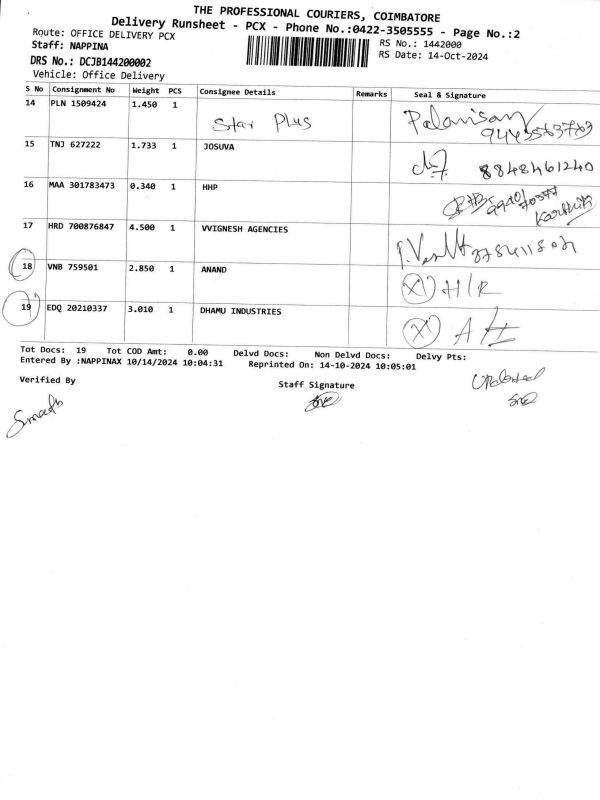 THE PROFESSIONAL COURIERS, COIMBATORE
Delivery Runsheet - PCX - Phone No.:0422-3505555 - Page No.:2
Route: OFFICE DELIVERY PCX
RS No.: 1442000
Staff: NAPPINA
RS Date: 14-Oct-2024
DRS No.: DCJB144200002
Vehicle: Office Delivery
S No Consignment No Weight PCS Consignee Details Remarks Seal & Signature
14 PLN 1509424 1.450 1 Star Plus Palanisamy
15 TNJ 627222 1.733 1 JOSUVA 8848461240
16 MAA 301783473 0.340 1 HHP Karthik
17 HRD 700876847 4.500 1 VVIGNESH AGENCIES
18 VNB 759501 2.850 1 ANAND (X) H/R
19 EDQ 20210337 3.010 1 DHAMU INDUSTRIES (X)
Tot Docs: 19 Tot COD Amt: 0.00 Delvd Docs: Non Delvd Docs: Delvy Pts:
Entered By :NAPPINAX 10/14/2024 10:04:31 Reprinted On: 14-10-2024 10:05:01
Verified By Staff Signature Updated